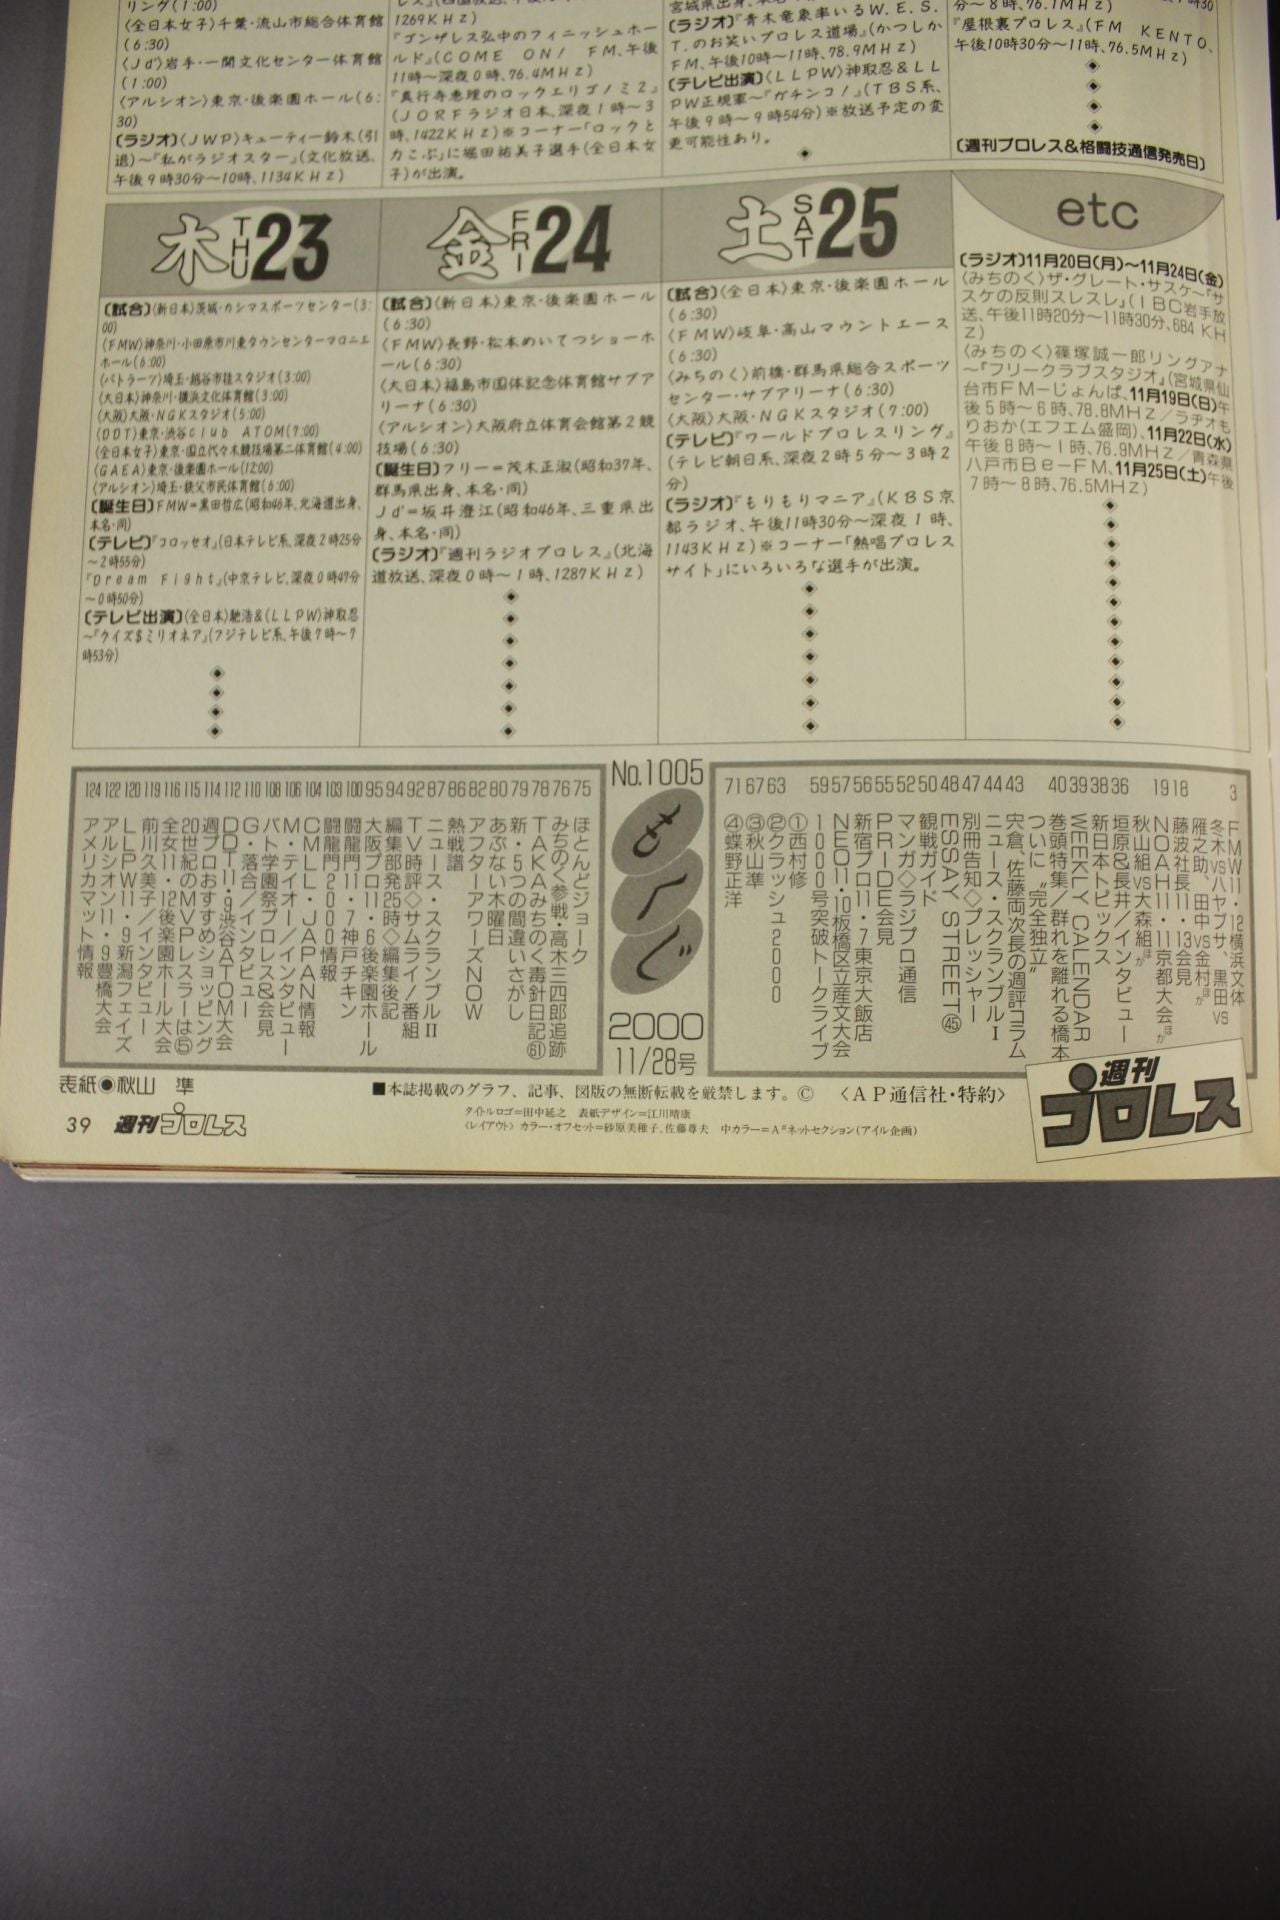 リング(1:00)
〈全日本女子〉千葉・流山市総合体育館
(6:30)
〈Jd'〉岩手・一関文化センター体育館
(1:00)
〈アルシオン〉東京・後楽園ホール(6:
30)
〔ラジオ〕〈JWP〉キューティー鈴木(引
退)〜『私がラジオスター』(文化放送、
午後9時30分〜10時、1134KHz)
1269KHz)
『ゴンザレス弘中のフィニッシュホー
ルド』(COME ON! FM、午後
11時〜深夜0時、76.4MHz)
『真行寺恵理のロックエリゴノミ2』
(JORFラジオ日本、深夜1時〜3
時、1422KHz)※コーナー「ロックと
力こぶ」に堀田祐美子選手(全日本女
子)が出演。
〔ラジオ〕『青木竜象率いるW.E.S.
T.のお笑いプロレス道場』(かつしか
FM、午後10時〜11時、78.9MHz)
〔テレビ出演〕〈LLPW〉神取忍&LL
PW正規軍〜『ガチンコ!』(TBS系、
午後9時〜9時54分)※放送予定の変
更可能性あり。
分〜8時、76.1MHz)
『屋根裏プロレス』(FM KENTO、
午後10時30分〜11時、76.5MHz)
〔週刊プロレス&格闘技通信発売日〕
木 THU 23
〔試合〕〈新日本〉茨城・カシマスポーツセンター(3:
00)
〈FMW〉神奈川・小田原市川東タウンセンターマロニエ
ホール(6:00)
〈バトラーツ〉埼玉・越谷市桂スタジオ(3:00)
〈大日本〉神奈川・横浜文化体育館(3:00)
〈大阪〉大阪・NGKスタジオ(5:00)
〈DDT〉東京・渋谷club ATOM(7:00)
〈全日本女子〉東京・国立代々木競技場第二体育館(4:00)
〈GAEA〉東京・後楽園ホール(12:00)
〈アルシオン〉埼玉・秩父市民体育館(6:00)
〔誕生日〕FMW=黒田哲広(昭和46年、北海道出身、
本名・同)
〔テレビ〕『コロッセオ』(日本テレビ系、深夜2時25分
〜2時55分)
『Dream Fight』(中京テレビ、深夜0時47分
〜0時50分)
〔テレビ出演〕〈全日本〉馳浩&〈LLPW〉神取忍
〜『クイズ$ミリオネア』(フジテレビ系、午後7時〜7
時53分)
金 FRI 24
〔試合〕〈新日本〉東京・後楽園ホール
(6:30)
〈FMW〉長野・松本めいてつショーホ
ール(6:30)
〈大日本〉福島市国体記念体育館サブア
リーナ(6:30)
〈アルシオン〉大阪府立体育会館第2競
技場(6:30)
〔誕生日〕フリー=茂木正淑(昭和37年、
群馬県出身、本名・同)
Jd'=坂井澄江(昭和46年、三重県出
身、本名・同)
〔ラジオ〕『週刊ラジオプロレス』(北海
道放送、深夜0時〜1時、1287KHz)
土 SAT 25
〔試合〕〈全日本〉東京・後楽園ホール
(6:30)
〈FMW〉岐阜・高山マウントエース
(6:30)
〈みちのく〉前橋・群馬県総合スポーツ
センター・サブアリーナ(6:30)
〈大阪〉大阪・NGKスタジオ(7:00)
〔テレビ〕『ワールドプロレスリング』
(テレビ朝日系、深夜2時5分〜3時2
分)
〔ラジオ〕『もりもりマニア』(KBS京
都ラジオ、午後11時30分〜深夜1時、
1143KHz)※コーナー「熱唱プロレス
サイト」にいろいろな選手が出演。
etc
〔ラジオ〕11月20日(月)〜11月24日(金)
〈みちのく〉ザ・グレート・サスケ〜『サ
スケの反則スレスレ』(IBC岩手放
送、午後11時20分〜11時30分、684KH
z)
〈みちのく〉篠塚誠一郎リングアナ
〜『フリークラブスタジオ』(宮城県仙
台市FM-じょんぱ、11月19日(日)午
後5時〜6時、78.8MHz/ラヂオも
りおか(エフエム盛岡)、11月22日(水)
午後8時〜1時、76.9MHz/青森県
八戸市Be-FM、11月25日(土)午後
7時〜8時、76.5MHz)
No.1005
もくじ
2000
11/28号
3 FMW11・12横浜文体
冬木vsハヤブサ、黒田vs
雁之助、田中vs金村ほか
18 藤波社長11・13会見
19 NOAH11・11京都大会ほか
秋山組vs大森組ほか
36 垣原&長井/インタビュー
38 新日本トピックス
39 WEEKLY CALENDAR
40 巻頭特集/群れを離れる橋本
ついに“完全独立”
43 宍倉、佐藤両次長の週評コラム
44 ニュース・スクランブルI
47 別冊告知◇プレッシャー
48 ESSAY STREET㊺
50 観戦ガイド
52 マンガ◇ラジプロ通信
55 PRIDE会見
56 新宿プロ11・7東京大飯店
57 NEO11・10板橋区立産文大会
59 1000号突破トークライブ
63 ①西村修
67 ②クラッシュ2000
67 ③秋山準
71 ④蝶野正洋
75 ほとんどジョーク
76 みちのく参戦・高木三四郎追跡
78 TAKAみちのく毒針日記㉛
79 新・5つの間違いさがし
80 あぶない木曜日
82 アフターアワーズNOW
86 熱戦譜
87 ニュース・スクランブルII
92 TV時評◇サムライ!番組
94 編集部発25時◇編集後記
95 大阪プロ11・6後楽園ホール
100 闘龍門11・7神戸チキン
103 闘龍門2000情報
104 CMLL・JAPAN情報
106 M・テイオー/インタビュー
108 バト学園祭プロレス&会見
110 G・落合/インタビュー
112 DDT11・9渋谷ATOM大会
114 週プロおすすめショッピング
115 20世紀のMVPレスラーは⑤
116 全女11・12後楽園ホール大会
119 前川久美子/インタビュー
120 LLPW11・9新潟フェイズ
122 アルシオン11・9豊橋大会
124 アメリカマット情報
表紙●秋山 準
■本誌掲載のグラフ、記事、図版の無断転載を厳禁します。© 〈AP通信社・特約〉
タイトルロゴ=田中延之 表紙デザイン=江川晴康
〈レイアウト〉カラー・オフセット=砂原美稚子、佐藤尊夫 中カラー=A#ネットセクション(アイル企画)
39 週刊プロレス
週刊
プロレス